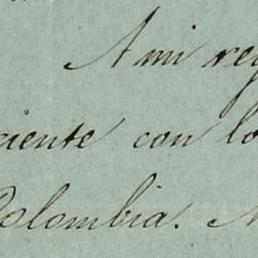 A mi reg
ciente con lo
Colombia. A